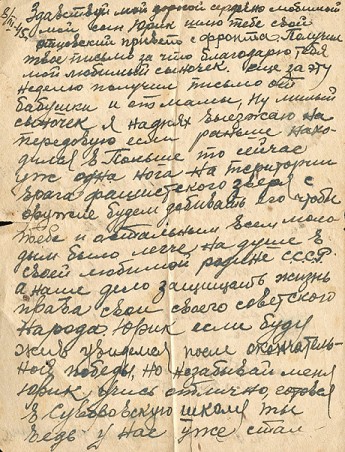 8/III-45 г. Здавствуй мой дорогой сердечно любимый
мой сын Юрик шлю тебе свой
отцовский привет с фронта. Получил
твое письмо за что благодарю тебя
мой любимый сыночек. еще за эту
неделю получил письмо от
бабушки и от мамы, Ну милый
сыночек я на днях выезжаю на
передовую если раньше нахо-
дился в Польше то сейчас
уж одна нога на територии
врага фашистского зверя с
оружие будем добивать его чтобы
тебе и остальным всем моло
дым было легче на душе в
своей любимой родине СССР.
а наше дело защищать жизнь
права свои своего советского
народа. Юрик если буду
жив увидемся после окончатель-
ной победы, но незабывай меня
Юрик учись отлично, готовся
в Суворовскую школу ты
ведь у нас уже стал